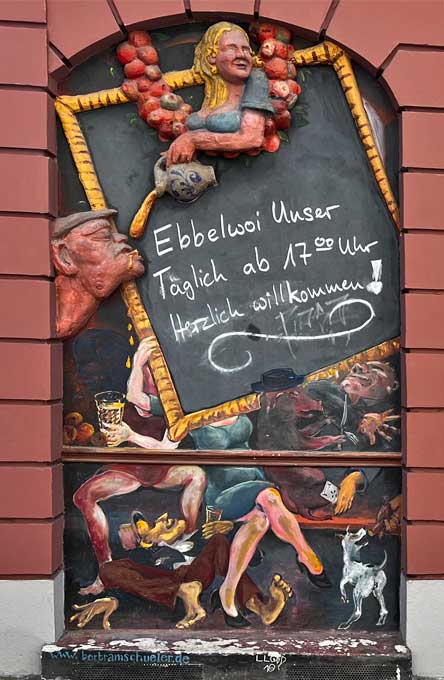 Ebbelwoi Unser
Täglich ab 17 00 Uhr
Herzlich willkommen!
www.bertramschueler.de